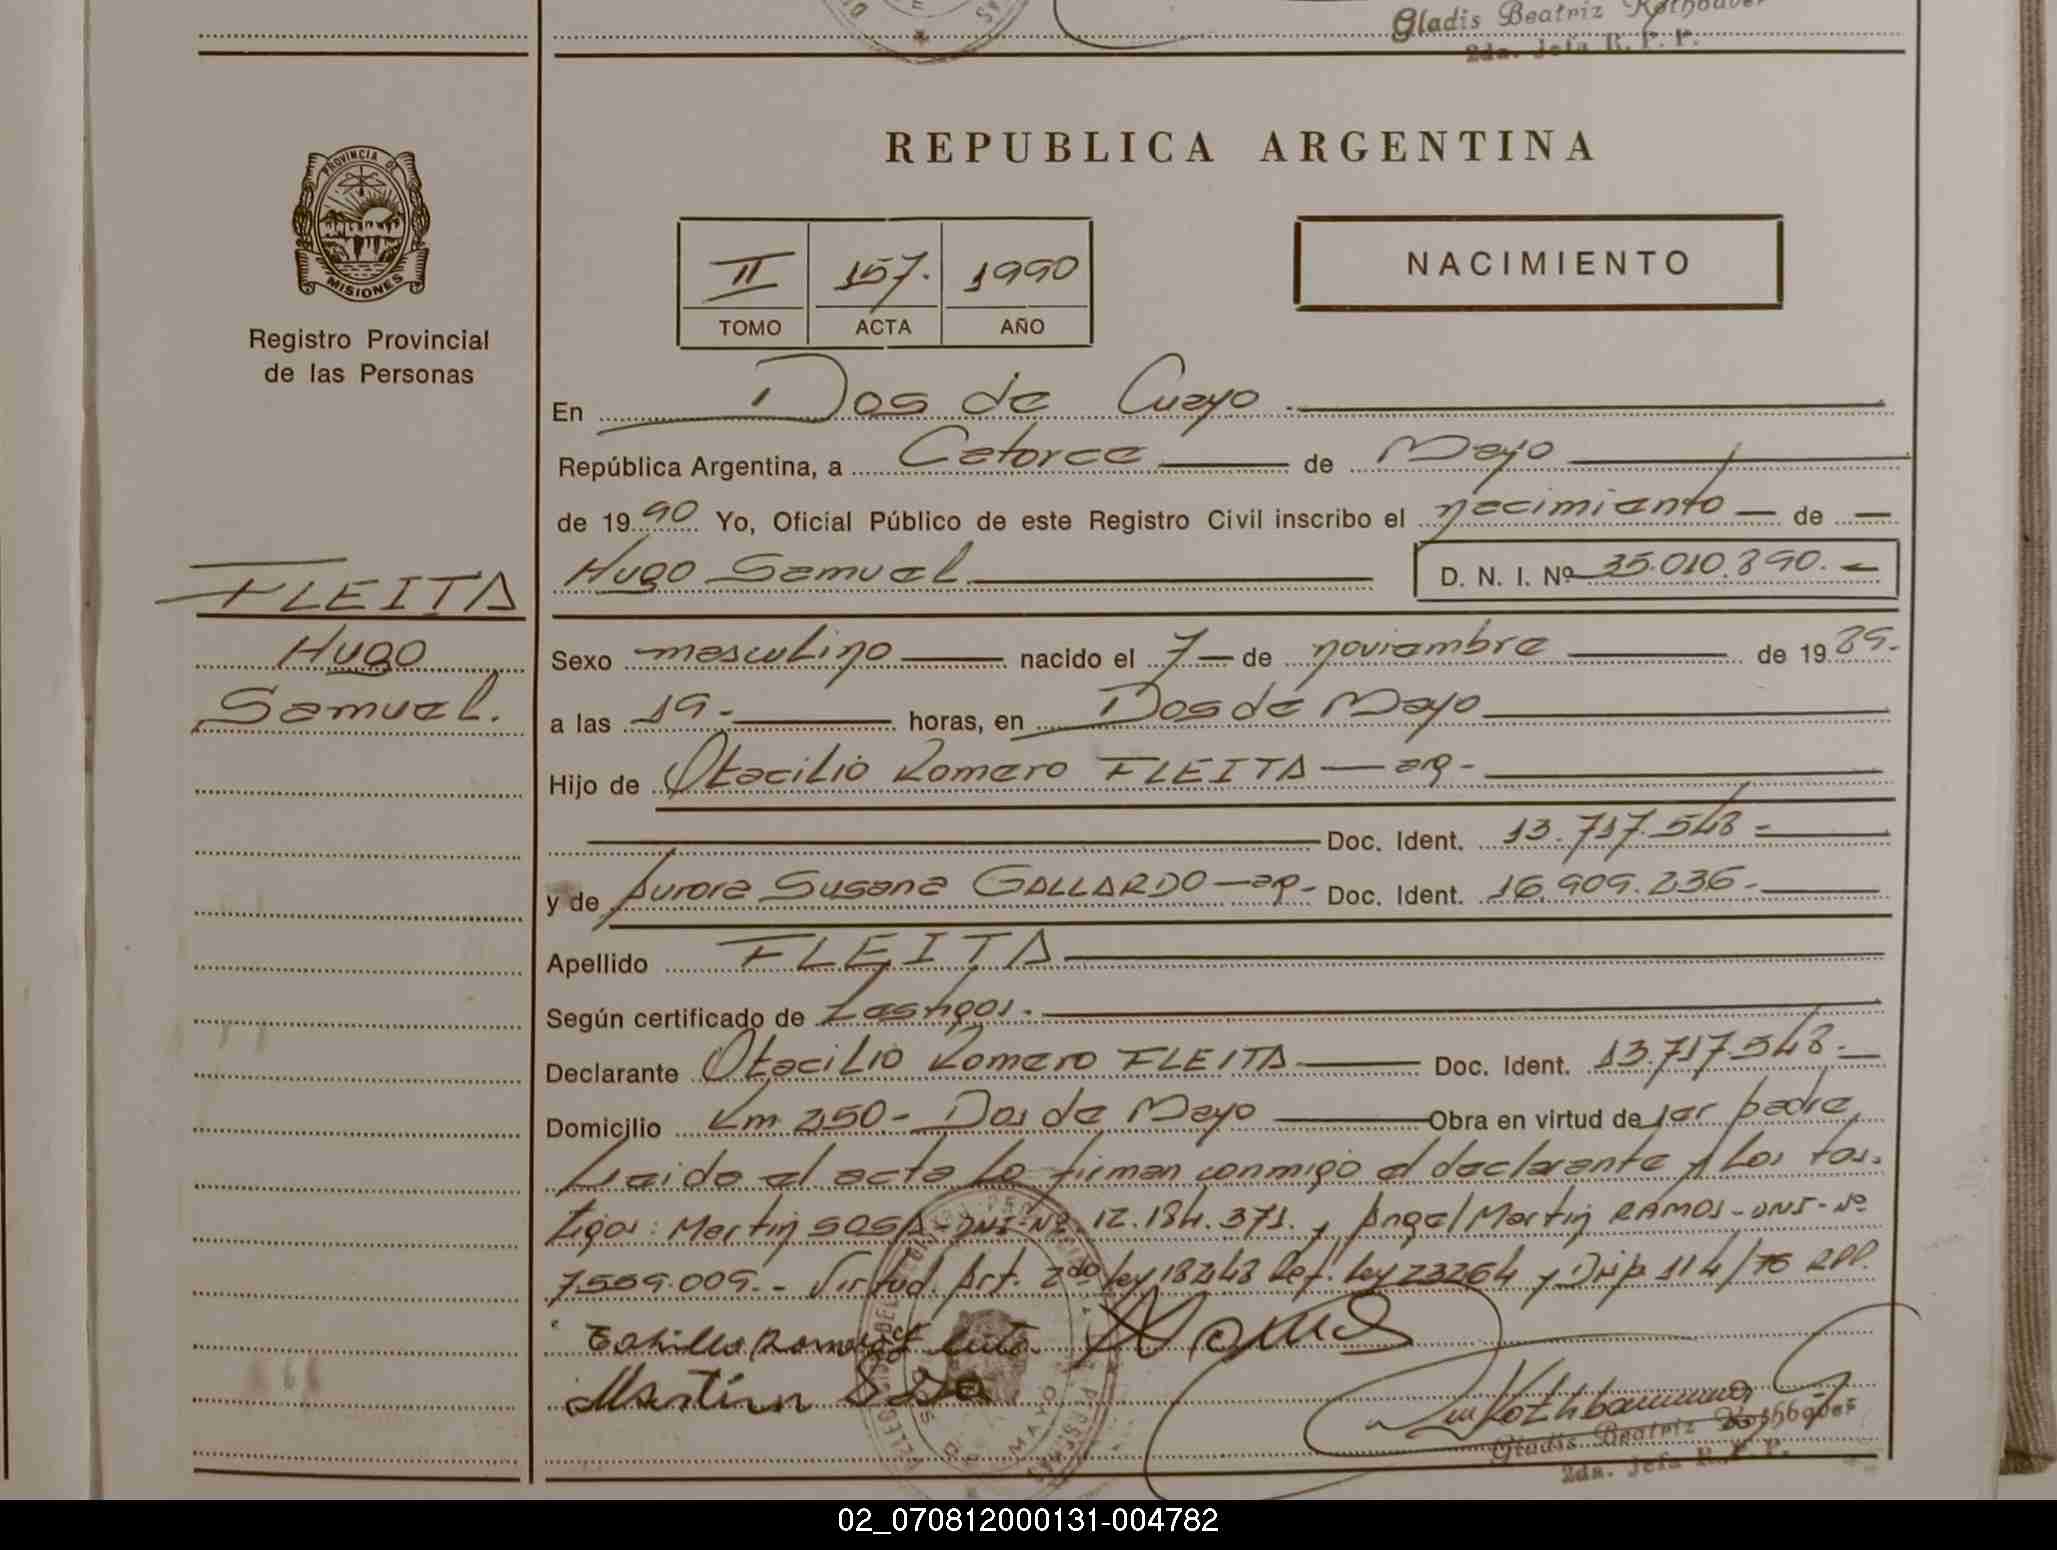 Gladis Beatriz Rothbauer
2da. Jefa R. P. P.
PROVINCIA DE
MISIONES
Registro Provincial
de las Personas
REPUBLICA ARGENTINA
II 157. 1990
TOMO ACTA AÑO
NACIMIENTO
En Dos de Cuayo
República Argentina, a Catorce de Mayo
de 1990 Yo, Oficial Público de este Registro Civil inscribo el nacimiento de
Hugo Samuel D. N. I. Nº 35.010.890.
FLEITA
Hugo
Samuel.
Sexo masculino nacido el 7 de noviembre de 1989.
a las 19 - horas, en Dos de Mayo
Hijo de Otacilio Romero FLEITA - arg -
Doc. Ident. 13.717.548 -
y de Aurora Susana GALLARDO - ar - Doc. Ident. 16.909.236 -
Apellido FLEITA
Según certificado de Testigos.
Declarante Otacilio Romero FLEITA Doc. Ident. 13.717.548 -
Domicilio Km 250 - Dos de Mayo Obra en virtud de ser padre
Leida el acta la firman conmigo el declarante y los tes-
tigos: Martin SOSA - DNI - Nº 12.184.371. y Angel Martin RAMOS - DNI - Nº
7.559.009. - Virtud Art. 2do ley 18248 Ref. ley 23264 y Disp. 114/76 RPP.
Martin Sosa
DOS DE MAYO
Gladis Beatriz Rothbauer
2da. Jefa R. P. P.
02_070812000131-004782